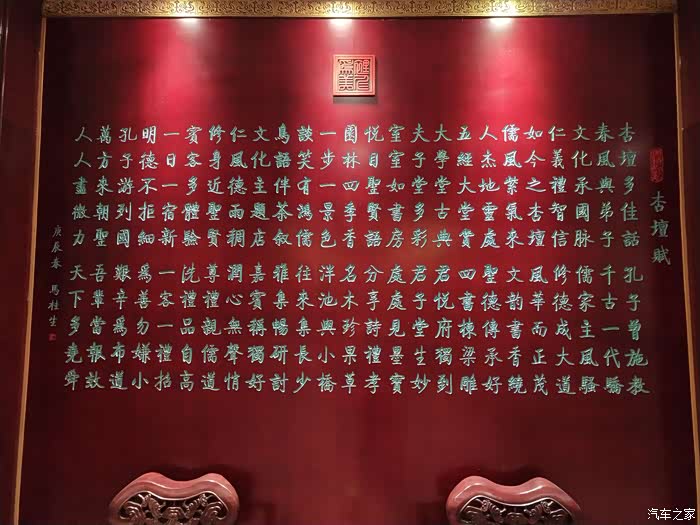 杏壇賦
杏壇多佳話 孔子曾施教
春風與弟子 千古一代驕
文化承國脉 儒家主風騷
仁義禮智信 修德成大道
如今之杏壇 風華而正茂
儒風紫氣來 文韵書香繞
人杰地靈處 聖德傳承好
五經大堂賞 四書棟梁雕
大學堂古典 君悅府獨到
夫子堂多彩 君子堂生妙
室室如書房 處處見墨寶
悅目聖賢語 分享詩禮孝
園林四季香 名木珍果草
一步一景色 洋池與小橋
談笑有鴻儒 往來集長少
鳥語伴茶叙 雅集暢研討
文化主題店 嘉賓稱獨好
仁風德雨稠 潤心無聲悄
修身近聖賢 尊禮觀儒道
賓客多體驗 洗禮品自高
一日一宿新 一客一禮招
明德不拒細 爲善勿嫌小
孔子游列國 艱辛爲布道
萬方來朝聖 吾輩當報效
人人盡微力 天下多堯舜
庚辰春 馬桂生
汽车之家